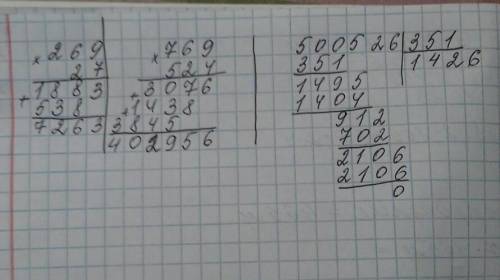 × 269
27
+ 1883
538
7263
× 769
524
+ 3076
+ 1438
3845
402956
500526 351
351 1426
1495
1404
912
702
2106
2106
0